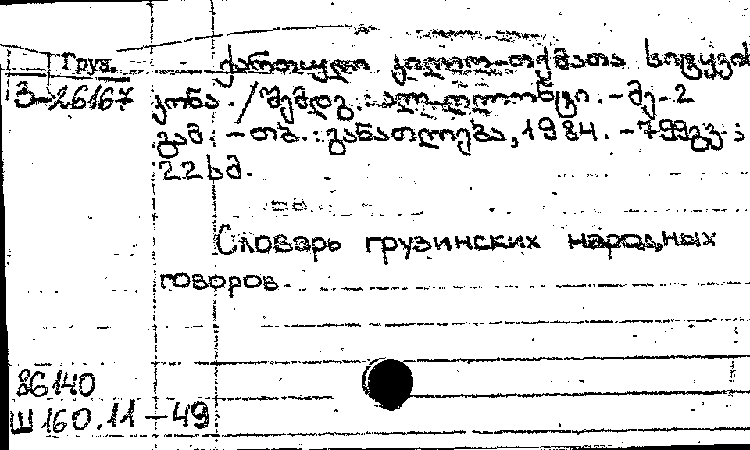 Груз.
ქართულ კილო-თქმათა სიტყვის
3-26167 კონა. /შემდგ.: ალ. ღლონტი. - მე-2
გამ. - თბ.: განათლება, 1984. - 799გვ.;
22სმ.
Словарь грузинских народных
говоров.
86140
Ш160.11-49